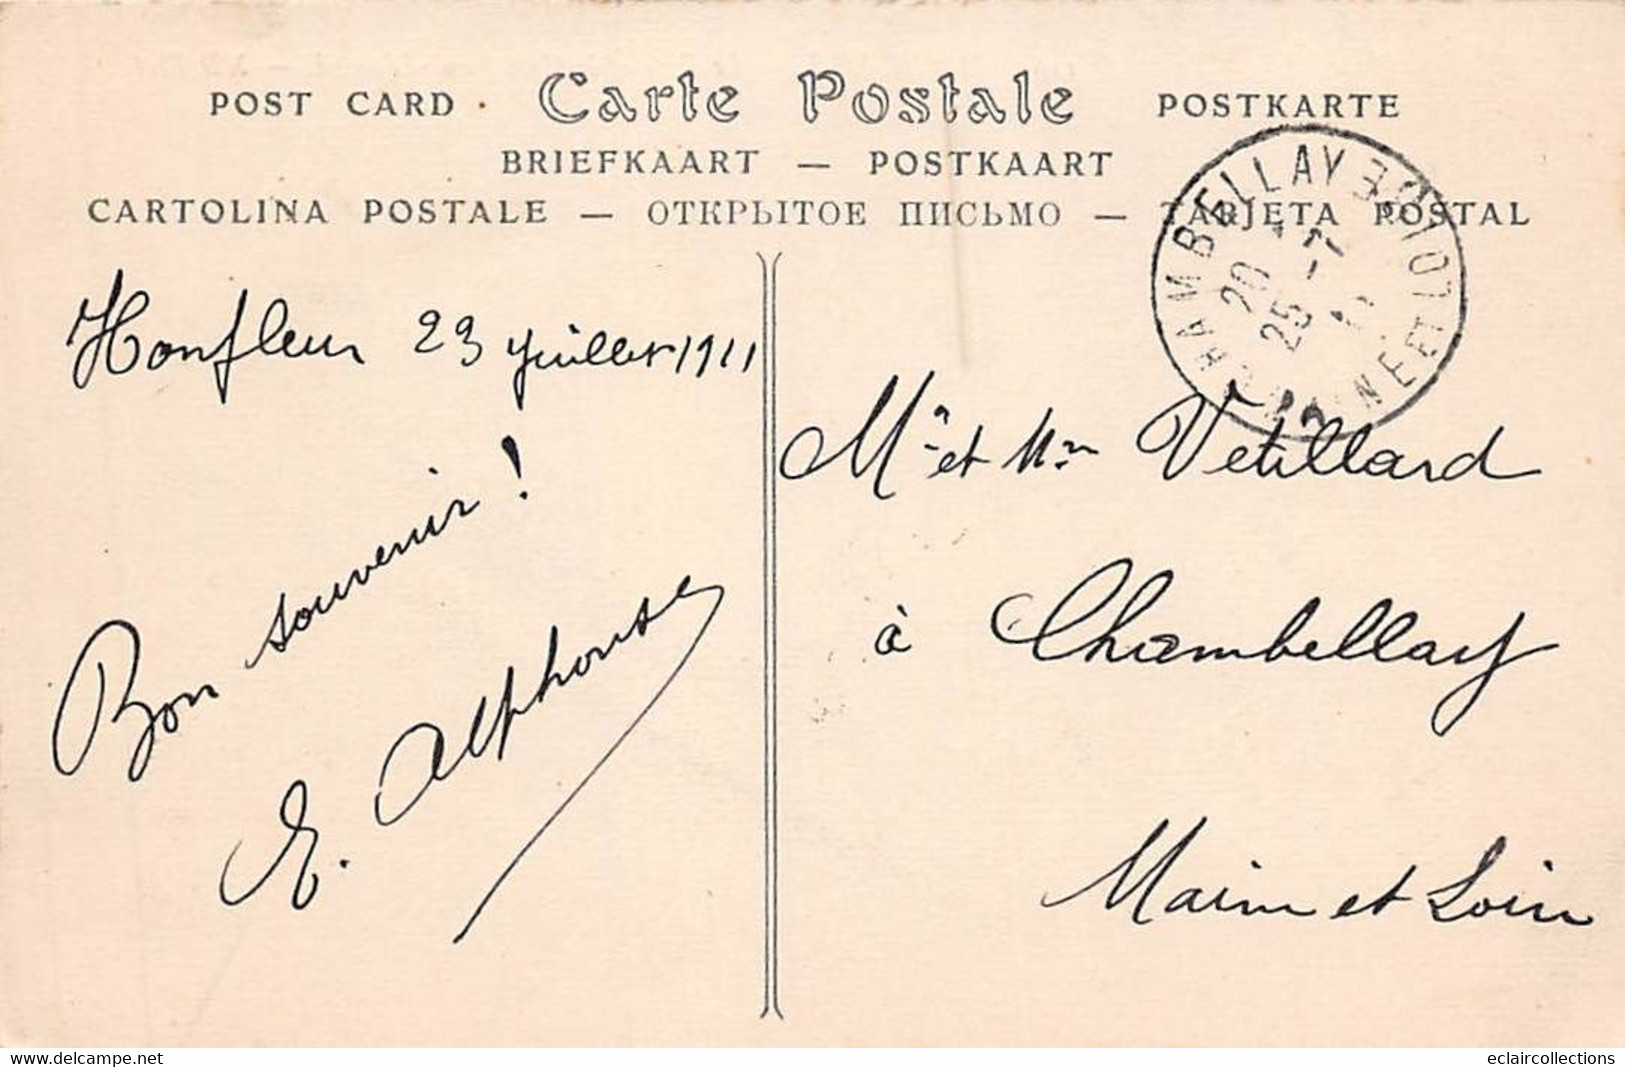 POST CARD Carte Postale POSTKARTE
BRIEFKAART — POSTKAART
CARTOLINA POSTALE — ОТКРЫТОЕ ПИСЬМО — TARJETA POSTAL
CHAMBELLAY MAINE ET LOIRE
20
25 -7
Honfleur 23 Juillet 1911
Bon souvenir !
E. Alphonse
Mr et Mme Vetillard
à Chambellay
Maine et Loire
www.delcampe.net
eclaircollections